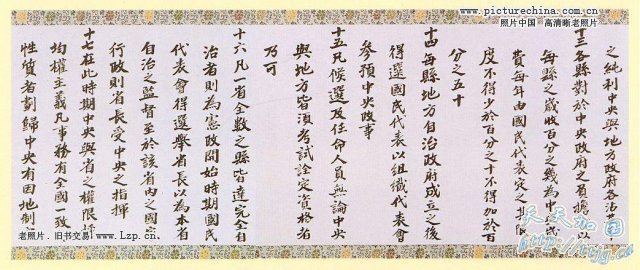 www.picturechina.com.cn
照片中国·高清晰老照片
之純利中央與地方政府各沾
十三各縣對於中央政府之負擔以
每縣之歲收百分之幾為中央
費每年由國民代表定之其限
度不得少於百分之十不得加於百
分之五十
十四每縣地方自治政府成立之後
得選國民代表以組織代表會
參預中央政事
十五凡候選及任命人員無論中央
與地方皆須考試詮定資格者
乃可
十六凡一省全數之縣皆達完全自
治者則為憲政開始時期國民
代表會得選舉省長以為本省
自治之監督至於該省內之國
行政則省長受中央之指揮
十七在此時期中央與省之權限
均權主義凡事務有全國一致
性質者劃歸中央有因地制
老照片．旧书交易 www.Lzp.cn